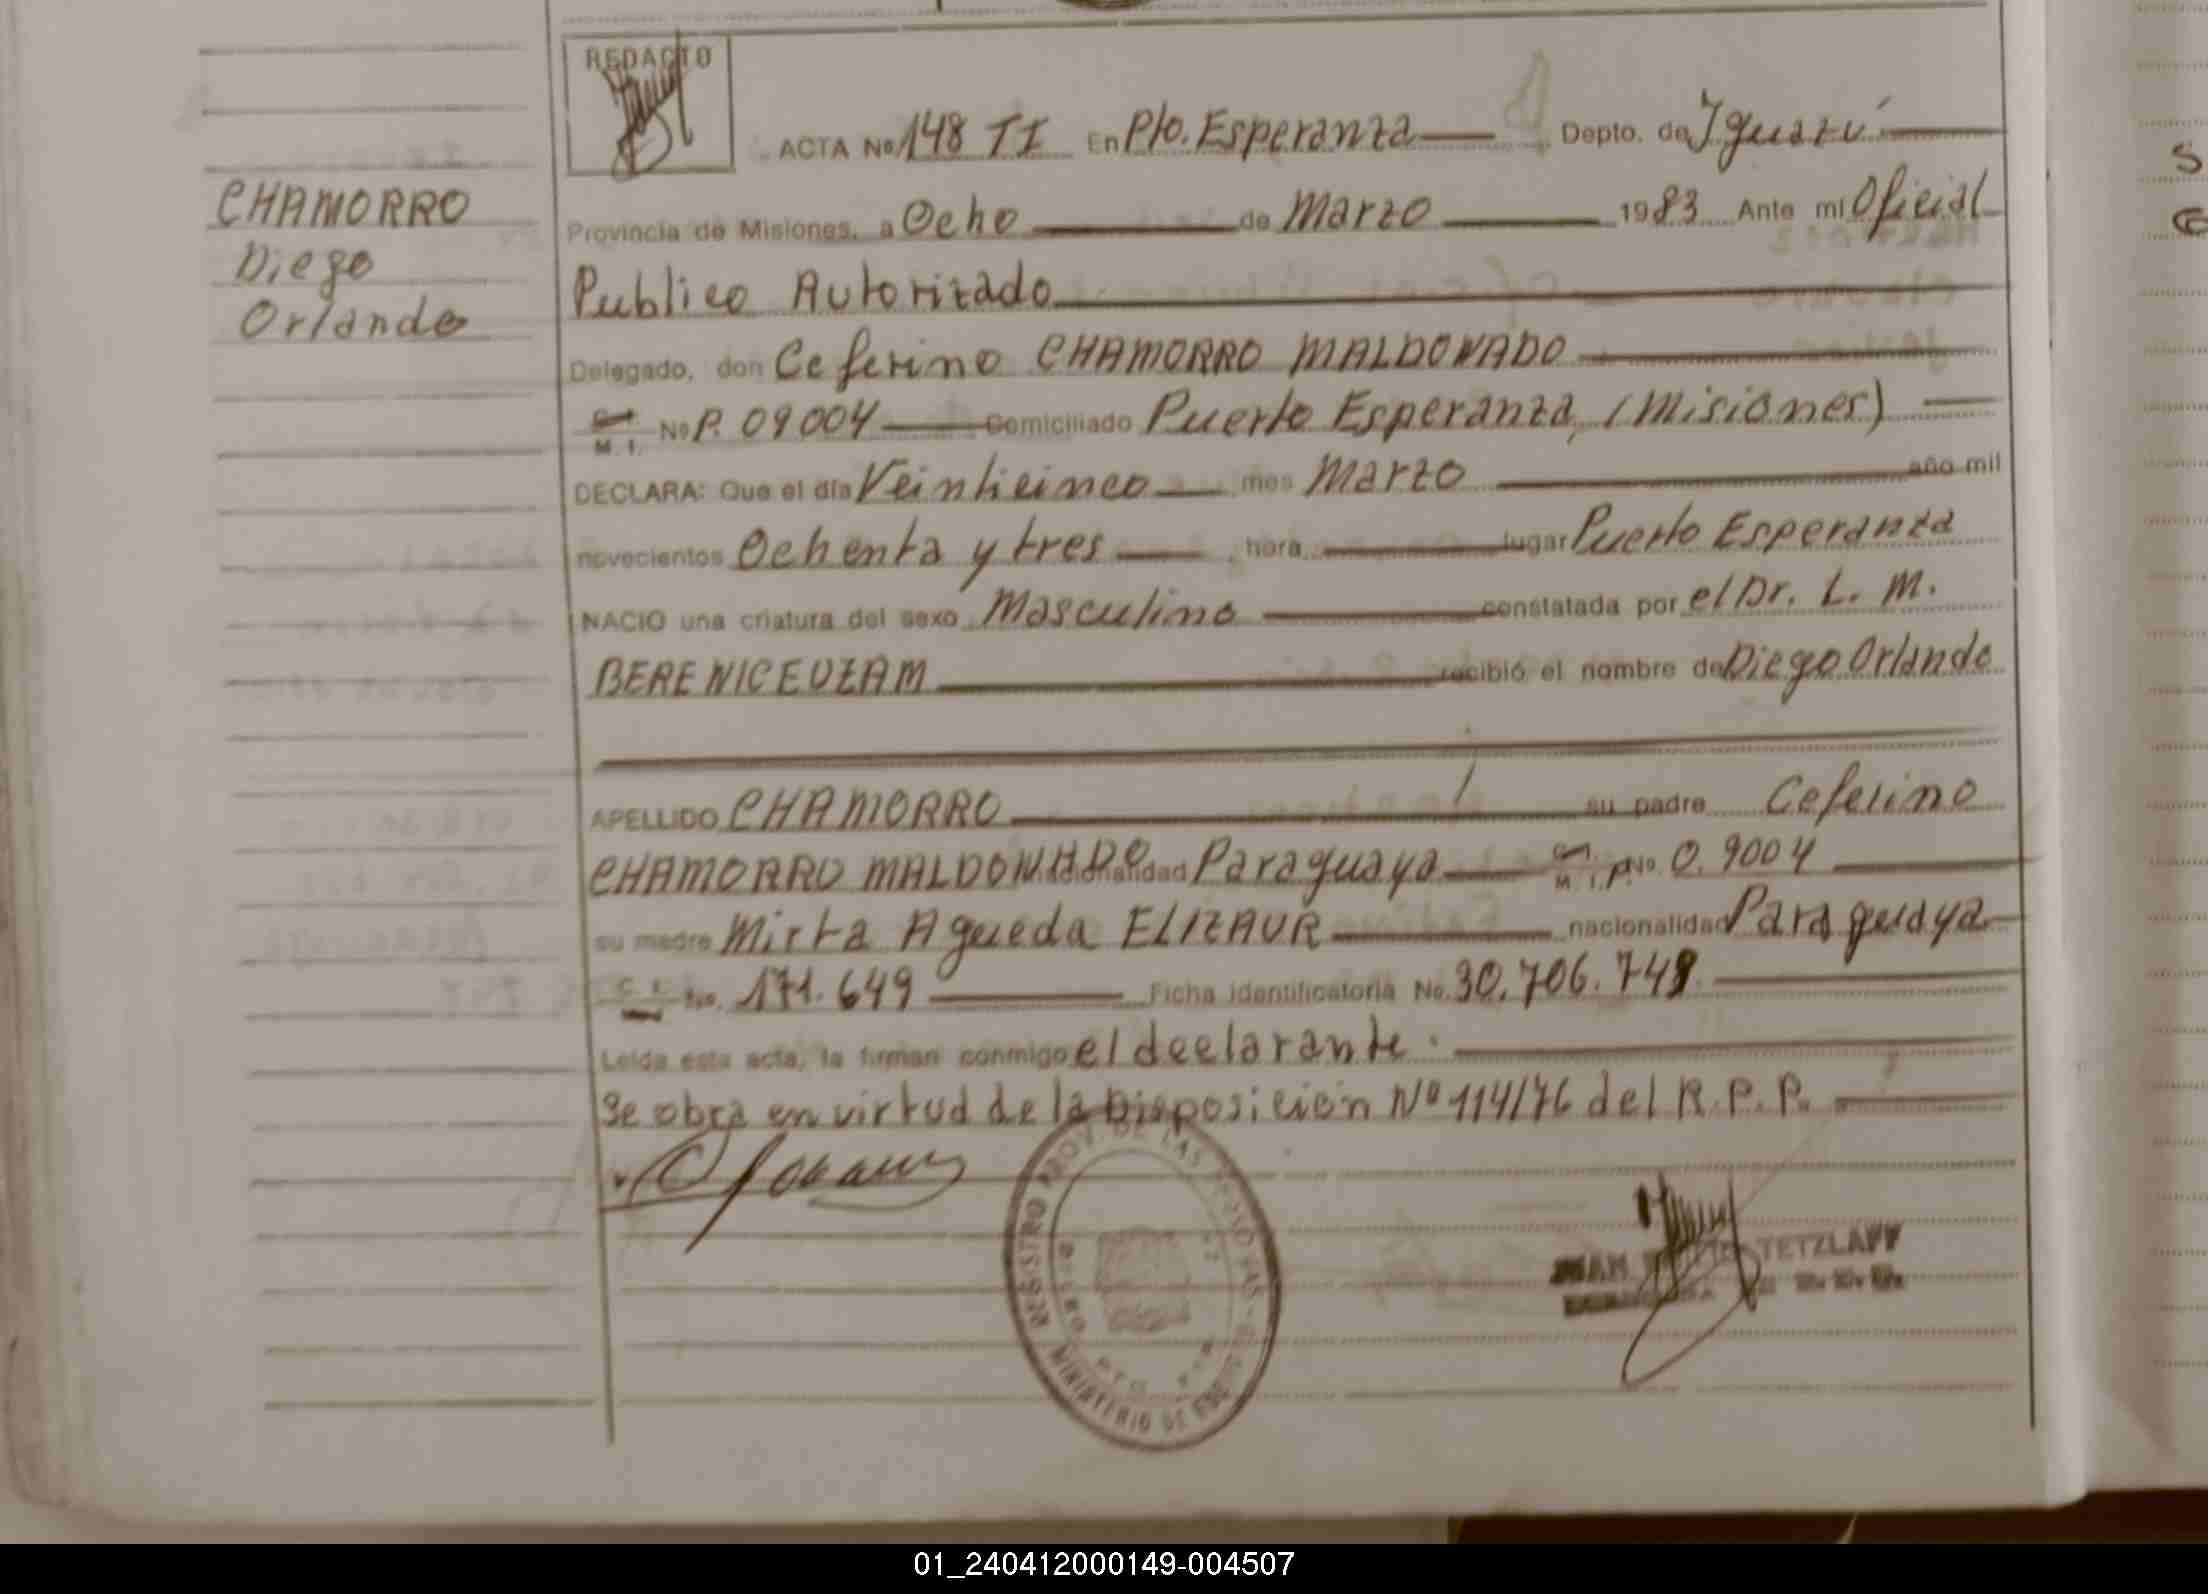 REDACTO
ACTA No 148 TI En Pto. Esperanza Depto. de Iguazú
CHAMORRO
Diego
Orlando
Provincia de Misiones, a Ocho de Marzo 1983 Ante mi Oficial
Publico Autorizado
Delegado, don Ceferino CHAMORRO MALDONADO
C.I. M. I. No P. 09004 Domiciliado Puerto Esperanza, (Misiones)
DECLARA: Que el día Veinticinco mes Marzo año mil
novecientos Ochenta y tres hora lugar Puerto Esperanza
NACIO una criatura del sexo Masculino constatada por el Dr. L. M.
BERENICEUZAM recibió el nombre de Diego Orlando
APELLIDO CHAMORRO su padre Ceferino
CHAMORRO MALDONADO nacionalidad Paraguaya C.I. M. I. P. No. 0.9004
su madre Mirta Agueda ELIZAUR nacionalidad Paraguaya
C. I. No. 171.649 Ficha identificatoria No. 30.706.749
Leída esta acta, la firman conmigo el declarante.
Se obra en virtud de la Disposición Nº 114/76 del R.P.P.
REGISTRO PROV. DE LAS PERSONAS
MINISTERIO DE
JUAN TETZLAFF
01_240412000149-004507